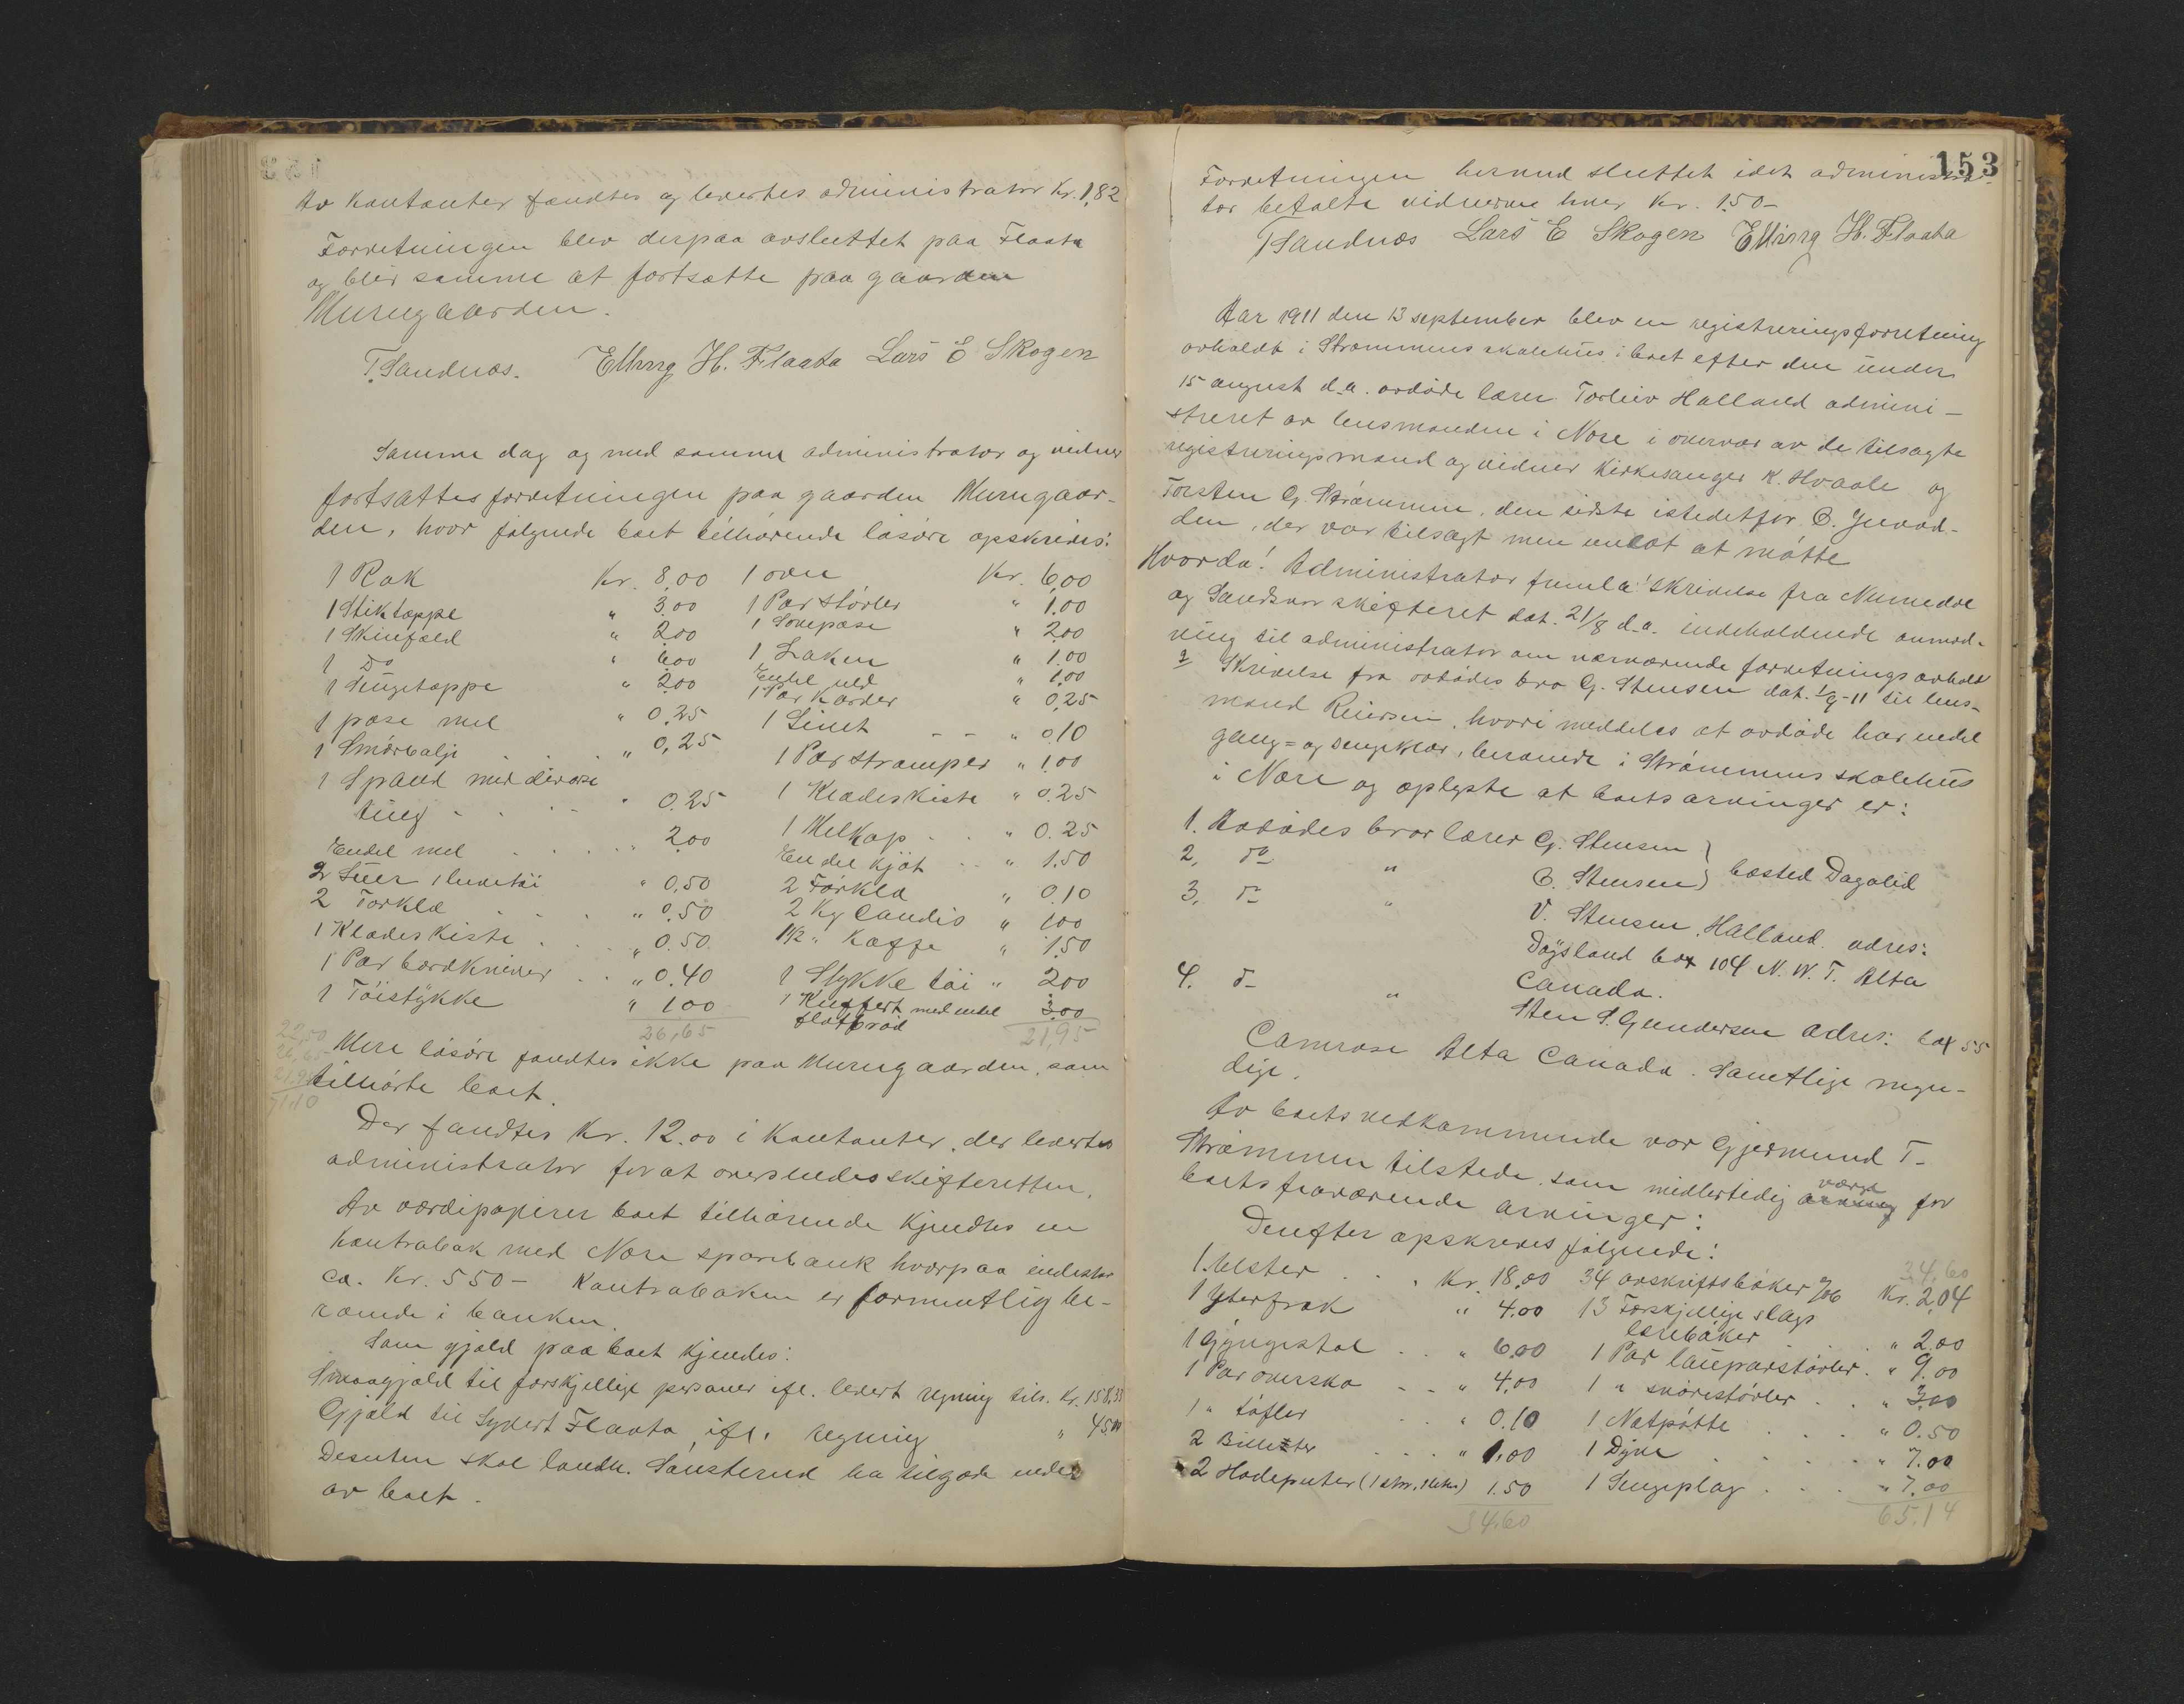 Av Kontanter fandtes og levertes administrator Kr. 1,82
Forretningen blev derpaa avsluttet paa Flaata
og blir samme at fortsætte paa gaarden
Murugaarden.
T. Sandnæs. Elling H. Flaata Lars E Skogen
Samme dag og med samme administrator og vidner
fortsattes forretningen paa gaarden Murugaar-
den, hvor følgende boet tilhørende løsøre opskreves:
1 Rok Kr. 8,00
1 Stiktæppe " 3.00
1 Skinfæld " 2.00
1 Do " 6.00
1 Sengetæppe " 2.00
1 pose mel " 0,25
1 Smørbalje . . . " 0,25
1 Spand med diverse
ting - - - " 0.25
Endel mel . . . " 2.00
2 Luer " 0,50
2 Forklæ . . . " 0,50
1 Klædeskiste . . . " 0.50
1 Par bordkniver . . " 0.40
1 Tøistykke " 1.00
26,65
1 oven Kr. 6,00
1 Par støvler " 1.00
1 Sovepose " 2.00
1 Laken " 1.00
Endel uld " 1.00
1 Par Karder " 0,25
1 Linet - - " 0.10
1 Par strømper " 1.00
1 Klædeskiste " 0.25
1 Melkop . . " 0.25
Endel kjøt . . " 1.50
2 Forklæ " 0.10
2 Kg Candis " 1.00
1 1/2 " Kaffe " 1.50
1 Stykke tøi " 2.00
1 Kuffert med endel 3.00
flatbrød
21,95
22,50
26,65
21.95
71.10
Mere løsøre fandtes ikke paa Murugaarden, som
tilhørte boet.
Der fandtes Kr. 12.00 i Kontanter, der levertes
administrator for at oversendes skifteretten.
Av værdipapirer boet tilhørende kjendtes en
Kontrabok med Nore sparebank hvorpaa indestaar
ca. Kr. 550- Kontraboken er formentlig be-
roende i banken.
Som gjæld paa boet kjendes:
Smaagjæld til forskjellige personer ifl. levert regning tils. Kr. 158,33
Gjæld til Syvert Flaata, ifl. regning " 45.00
Desuten skal landh. Sausterud ha tilgode endel
av boet.
153
Forretningen hermed sluttet idet administra-
tor betalte vidnerne hver Kr. 1.50-
T Sandnæs Lars E Skogen Elling H. Flaata
Aar 1911 den 13 september blev en registreringsforretning
avholdt i Strømmens skolehus i boet efter den under
15 august d.a. avdøde lærer Torleiv Halland admini-
streret av lensmanden i Nore i overvær av de tilsagte
registreringsmænd og vidner Kirkesanger K. Hvaale og
Torsten G. Strømmen, den sidste istedetfor
den, der var tilsagt men unlot at møtte
Hvorda! Administrator fremla: 1 Skrivelse fra Numedal
og Sandsvær skifteret dat. 21/8 d.a. indeholdende anmod-
ning til administrator om nærværende forretnings avhold
2 Skrivelse fra avdødes bror G. Stensen dat. 1/9-11 til lens-
mand Reiersen, hvori meddeles at avdøde har endel
gang= og sengeklær, beroende i Strømmens skolehus
i Nore og oplyste at boets arvinger er:
1. Avdødes bror lærer G. Stensen }
2, do " B. Stensen } bosted Dagalid
3, do " V. Stensen, Halland. adres:
Daysland box 104 N. W. T. Alta
Canada.
4. d- " Sten S. Gundersen adres: box 55
Camrose Alta Canada. Samtlige myn-
dige.
Av boets vedkommende var Gjermund T.
Strømmen tilstede, som midlertidig arving værge for
boets fraværende arvinger:
Derefter opskreves følgende:
1. Ulster . . . Kr. 18.00
1 Yterfrak " 4.00
1 Gyngestol . . " 6.00
1 Par oversko - - " 4,00
1 " tøfler . . " 0.10
2 Billeter . . . " 1.00
2 Hodeputer 1.50
34,60
34,60
34 avskriftsbøker %06 Kr. 2,04
13 Forskjellige slags
lærebøker . . " 2.00
1 Par lauparstøvler . " 9.00
1 " snørestøvler . . " 3.00
1 Natpotte . . . " 0.50
1 Dyne . . . . " 7.00
1 Sengeplag . . . " 7.00
65.14